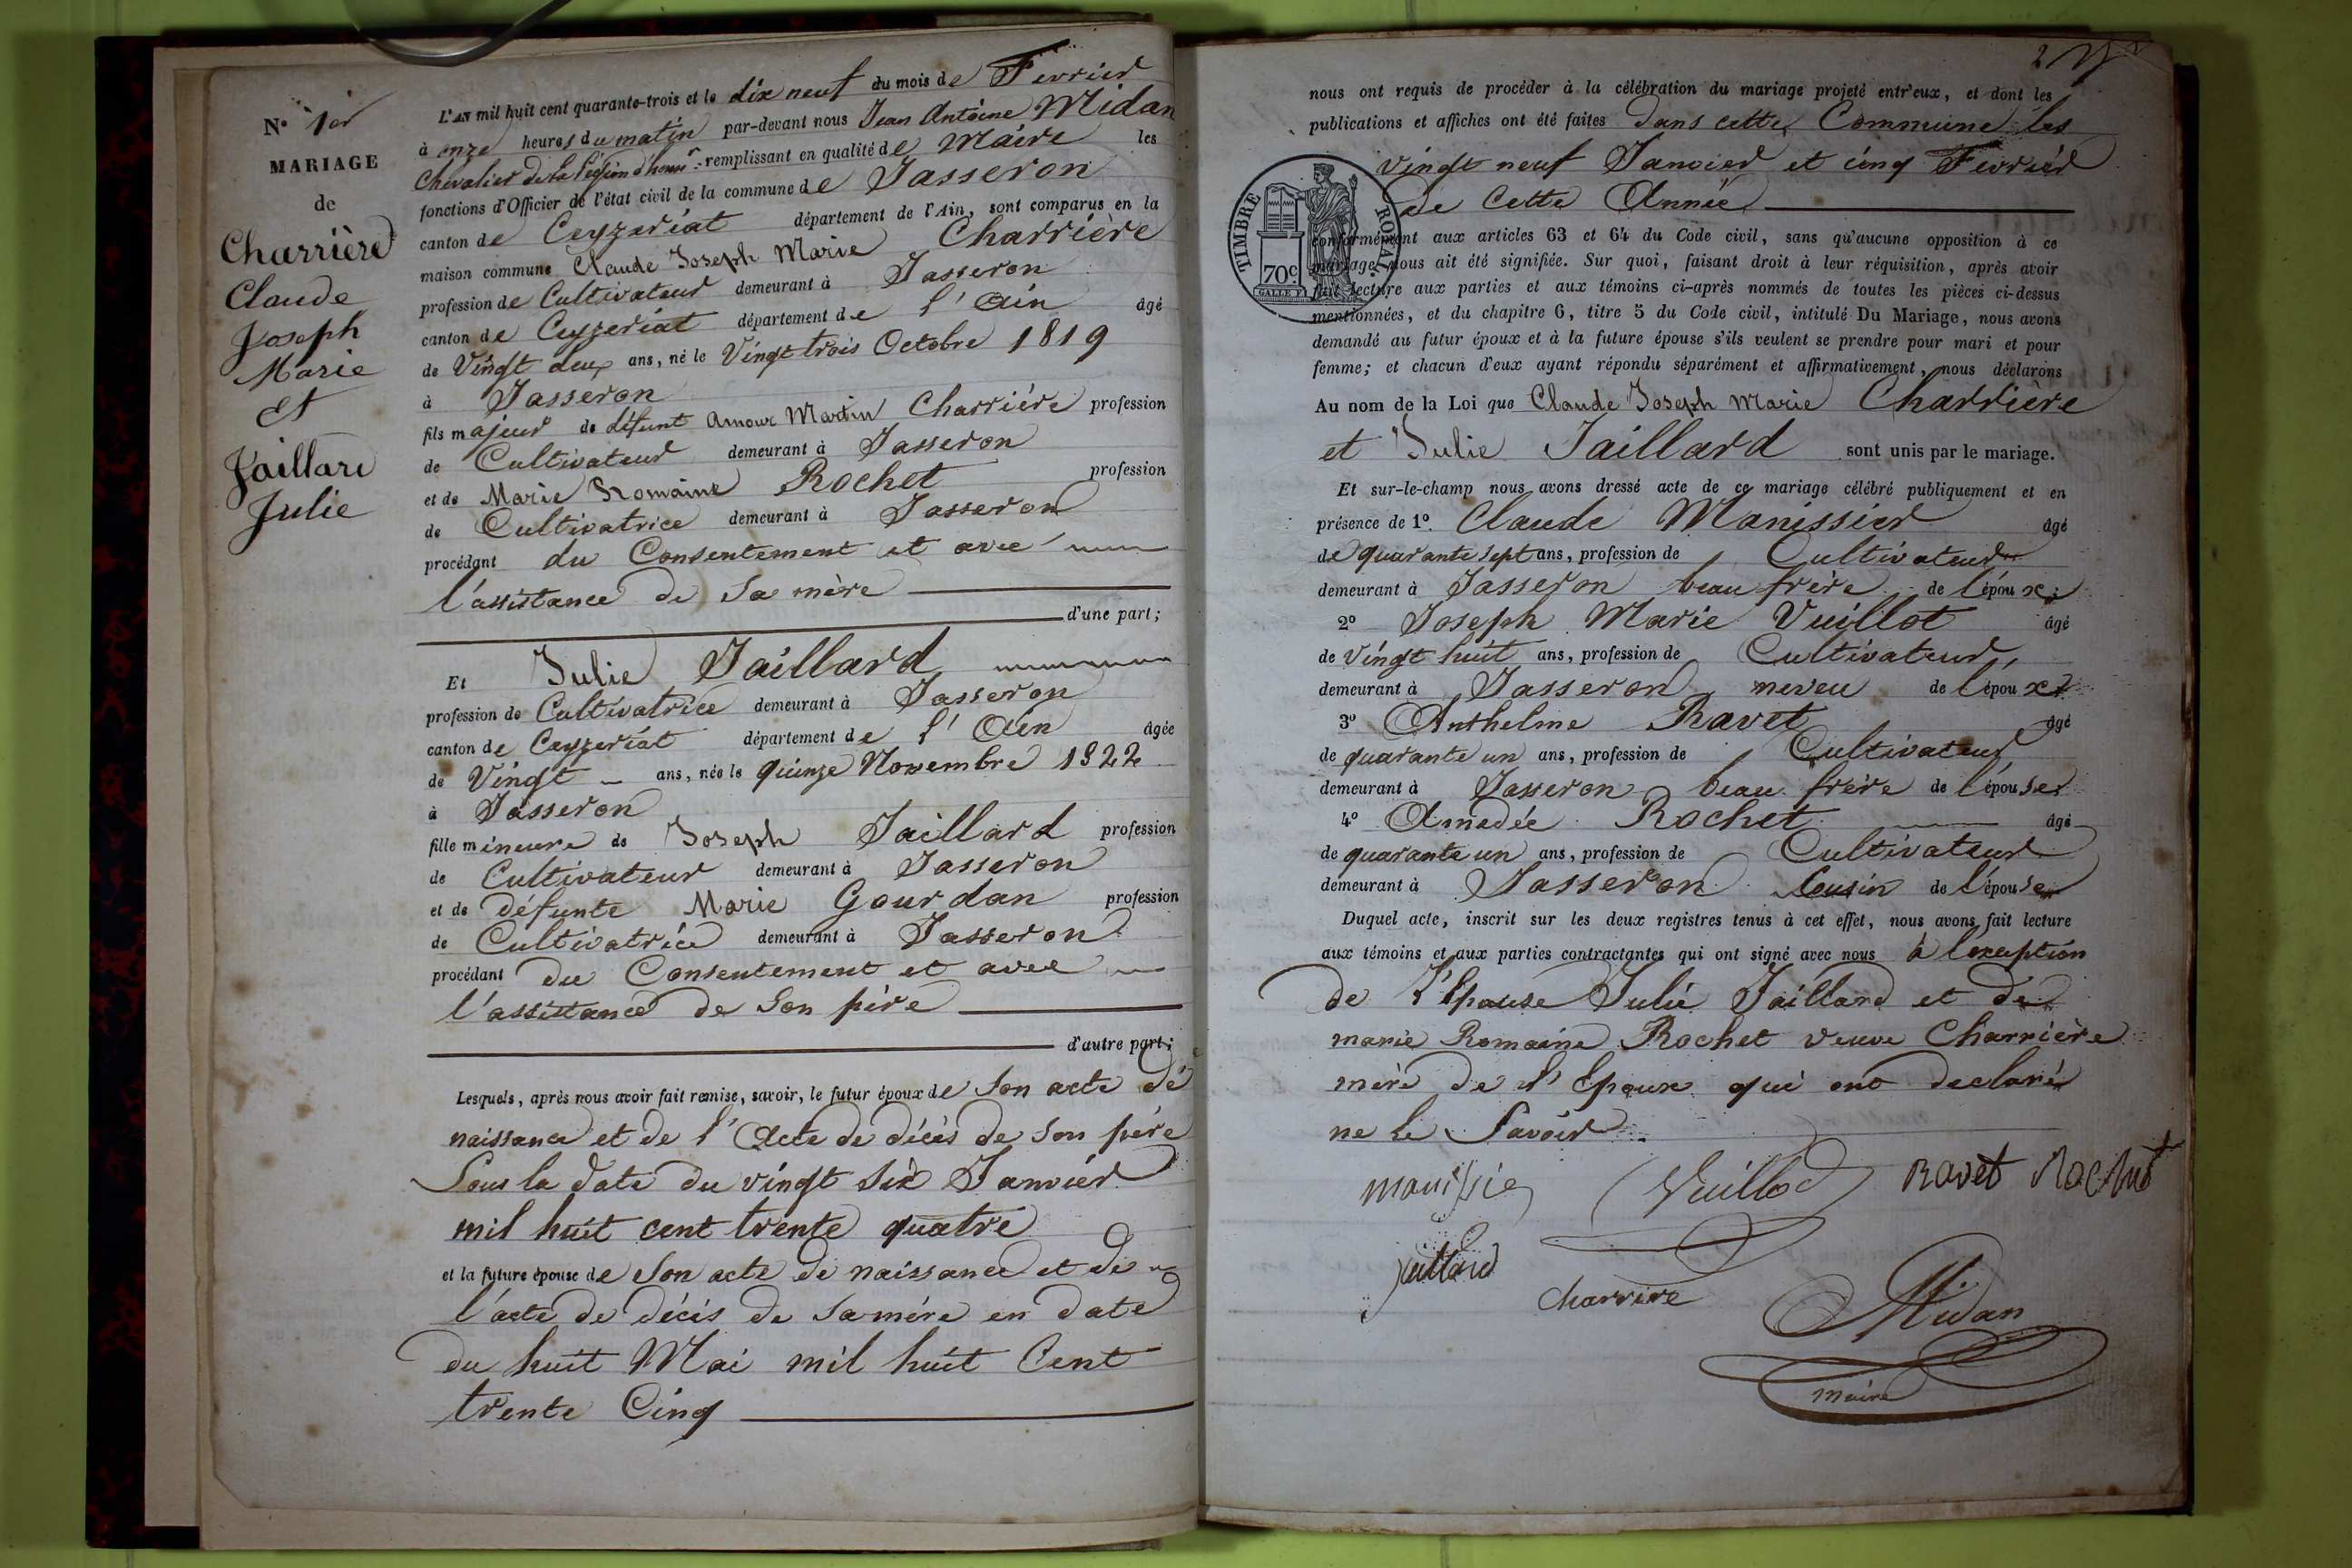 N.° 1er
MARIAGE
de
Charrière
Claude
Joseph
Marie
Et
Jaillard
Julie
L'AN mil huit cent quarante-trois et le dix neuf du mois de Fevrier
à onze heures du matin par-devant nous Jean Antoine Midan
Chevalier de la Légion d'honr remplissant en qualité de Maire les
fonctions d'Officier de l'état civil de la commune de Jasseron
canton de Ceyzeriat département de l'Ain, sont comparus en la
maison commune Claude Joseph Marie Charrière
profession de Cultivateur demeurant à Jasseron
canton de Ceyzeriat département de l'Ain âgé
de Vingt deux ans, né le Vingt trois Octobre 1819
à Jasseron
fils majeur de défunt Amour Martin Charrière profession
de Cultivateur demeurant à Jasseron
et de Marie Romaine Rochet profession
de Cultivatrice demeurant à Jasseron
procédant du Consentement et avec
l'assistance de Sa mère
d'une part;
Et Julie Jaillard
profession de Cultivatrice demeurant à Jasseron
canton de Ceyzeriat département de l'Ain âgée
de Vingt ans, née le quinze Novembre 1822
à Jasseron
fille mineure de Joseph Jaillard profession
de Cultivateur demeurant à Jasseron
et de défunte Marie Gourdan profession
de Cultivatrice demeurant à Jasseron
procédant du Consentement et avec
l'assistance de Son père
d'autre part;
Lesquels, après nous avoir fait remise, savoir, le futur époux de Son acte de
naissance et de l'Acte de décès de Son père
Sous la date du vingt six Janvier
mil huit cent trente quatre
et la future épouse de Son acte de naissance et de
l'acte de décès de Sa mère en date
du huit Mai mil huit Cent
trente Cinq
2
nous ont requis de procéder à la célébration du mariage projeté entr'eux, et dont les
publications et affiches ont été faites dans cette Commune les
vingt neuf Janvier et cinq Fevrier
de Cette Année
TIMBRE ROYAL.
70c
GALLE F
conformément aux articles 63 et 64 du Code civil, sans qu'aucune opposition à ce
mariage nous ait été signifiée. Sur quoi, faisant droit à leur réquisition, après avoir
fait lecture aux parties et aux témoins ci-après nommés de toutes les pièces ci-dessus
mentionnées, et du chapitre 6, titre 5 du Code civil, intitulé Du Mariage, nous avons
demandé au futur époux et à la future épouse s'ils veulent se prendre pour mari et pour
femme; et chacun d'eux ayant répondu séparément et affirmativement, nous déclarons
Au nom de la Loi que Claude Joseph Marie Charrière
et Julie Jaillard sont unis par le mariage.
Et sur-le-champ nous avons dressé acte de ce mariage célébré publiquement et en
présence de 1º. Claude Manissier âgé
de quarante sept ans, profession de Cultivateur
demeurant à Jasseron beau frère de l'époux;
2º Joseph Marie Vuillot âgé
de Vingt huit ans, profession de Cultivateur,
demeurant à Jasseron neveu de l'époux
3º Anthelme Ravet âgé
de quarante un ans, profession de Cultivateur
demeurant à Jasseron beau frère de l'épouse
4º Amedée Rochet âgé
de quarante un ans, profession de Cultivateur
demeurant à Jasseron Cousin de l'épouse
Duquel acte, inscrit sur les deux registres tenus à cet effet, nous avons fait lecture
aux témoins et aux parties contractantes qui ont signé avec nous à l'exception
de l'Epouse Julie Jaillard et de
marie Romaine Rochet veuve Charrière
mère de l'Epoux qui ont declaré
ne le Savoir.
manissier Vuillod Ravet Rochet
Jaillard
charrire
Midan
maire